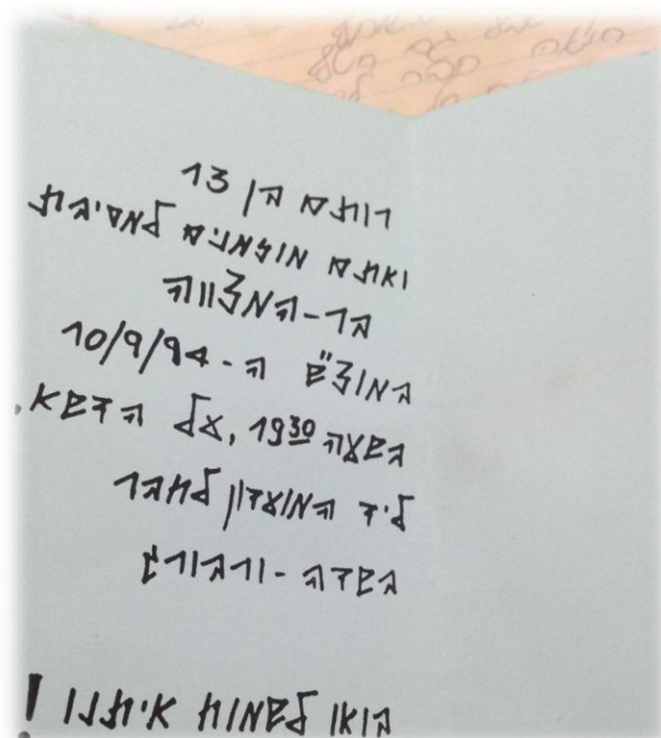 רותם בן 13
ואתם מוזמנים למסיבת
בר-המצווה
במוצ"ש ה- 10/9/94
בשעה 19³⁰, על הדשא,
ליד המועדון לחבר
בשדה-ורבורג
בואו לשמוח איתנו!